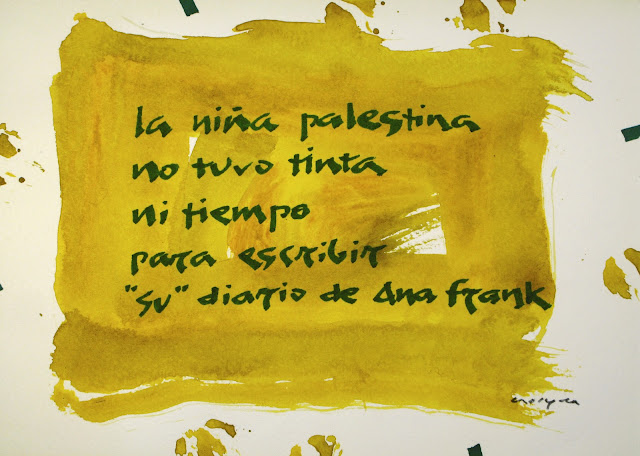 la niña palestina
no tuvo tinta
ni tiempo
para escribir
"su" diario de Ana Frank